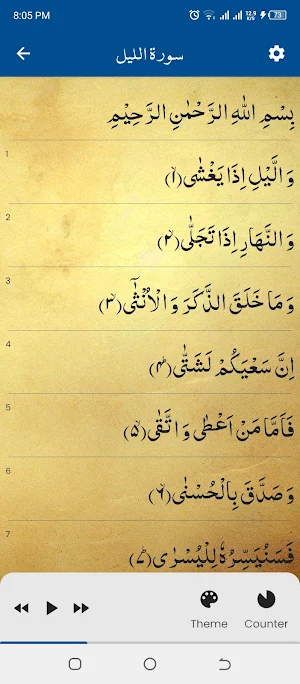 8:05 PM
12.9 K/s 73
سورة الليل
بِسْمِ اللهِ الرَّحْمٰنِ الرَّحِيْمِ
1
وَالَّيْلِ اِذَا يَغْشٰى (۱)
2
وَالنَّهَارِ اِذَا تَجَلّٰى (۲)
3
وَمَا خَلَقَ الذَّكَرَ وَالْاُنْثٰٓى (۳)
4
اِنَّ سَعْيَكُمْ لَشَتّٰى (۴)
5
فَاَمَّا مَنْ اَعْطٰى وَاتَّقٰى (۵)
6
وَصَدَّقَ بِالْحُسْنٰى (۶)
7
فَسَنُيَسِّرُهٗ لِلْيُسْرٰى (۷)
Theme Counter